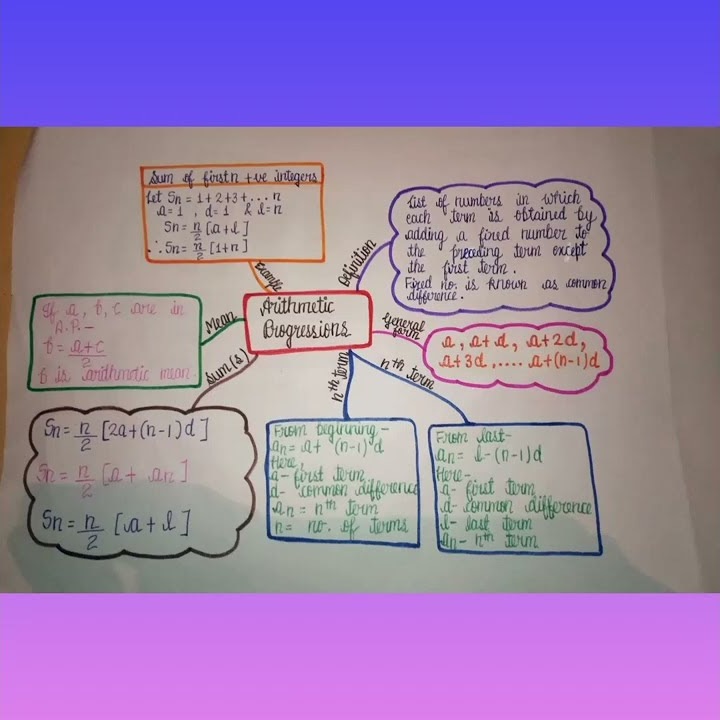 Sum of first n +ve integers
Let Sn = 1+2+3+.... n
a=1 , d=1 & l=n
Sn = n/2 [a+l]
∴ Sn = n/2 [1+n]
Example
Definition
List of numbers in which
each term is obtained by
adding a fixed number to
the preceding term except
the first term.
Fixed no. is known as common
difference.
Arithmetic
Progressions
Mean
If a, b, c are in
A.P.-
b = a+c/2
b is arithmetic mean.
General
form
a, a+d, a+2d,
a+3d, .... a+(n-1)d
Sum(s)
Sn = n/2 [2a+(n-1)d]
Sn = n/2 [a + an]
Sn = n/2 [a + l]
nth term
From beginning-
an = a + (n-1) d
Here,
a- first term
d- common difference
an = nth term
n = no. of terms
nth term
From last-
an = l-(n-1)d
Here-
a- first term
d- common difference
l- last term
an- nth term